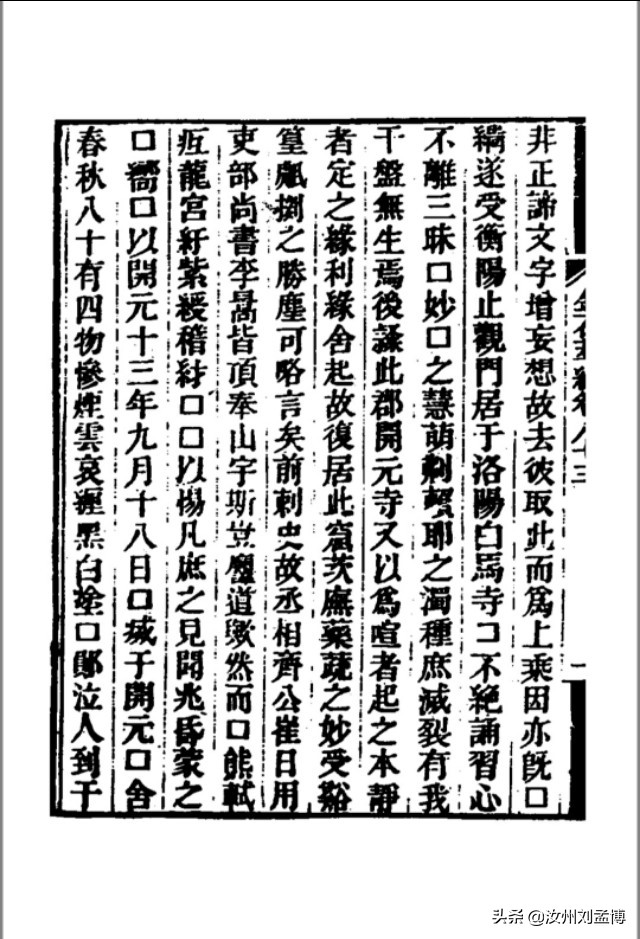 非正諦文字增妄想故去彼取此而爲上乘因亦旣口
繻遂受衡陽止觀門居于洛陽白馬寺口不絕誦習心
不離三昧口妙口之慧萌剃 耶之濁種庶滅裂有我
干盤無生焉後諜此郡開元寺又以爲喧者起之本靜
者定之緣利緣舍起故復居此窟茨廡藥蔬之妙受谿
篁飇捌之勝塵可略言矣前刺史故丞相齊公崔日用
吏部尚書李暠皆頂奉山宇斯豈 道 然而口熊軾
疘龍宮紆紫綬稽紺口口以楊凡庶之見聞兆昏蒙之
口嚮口以開元十三年九月十八日口滅于開元口舍
春秋八十有四物慘煙雲哀 黑白塗口鄭泣人到于
金石萃編卷八十三
一
头条 @汝州刘孟博